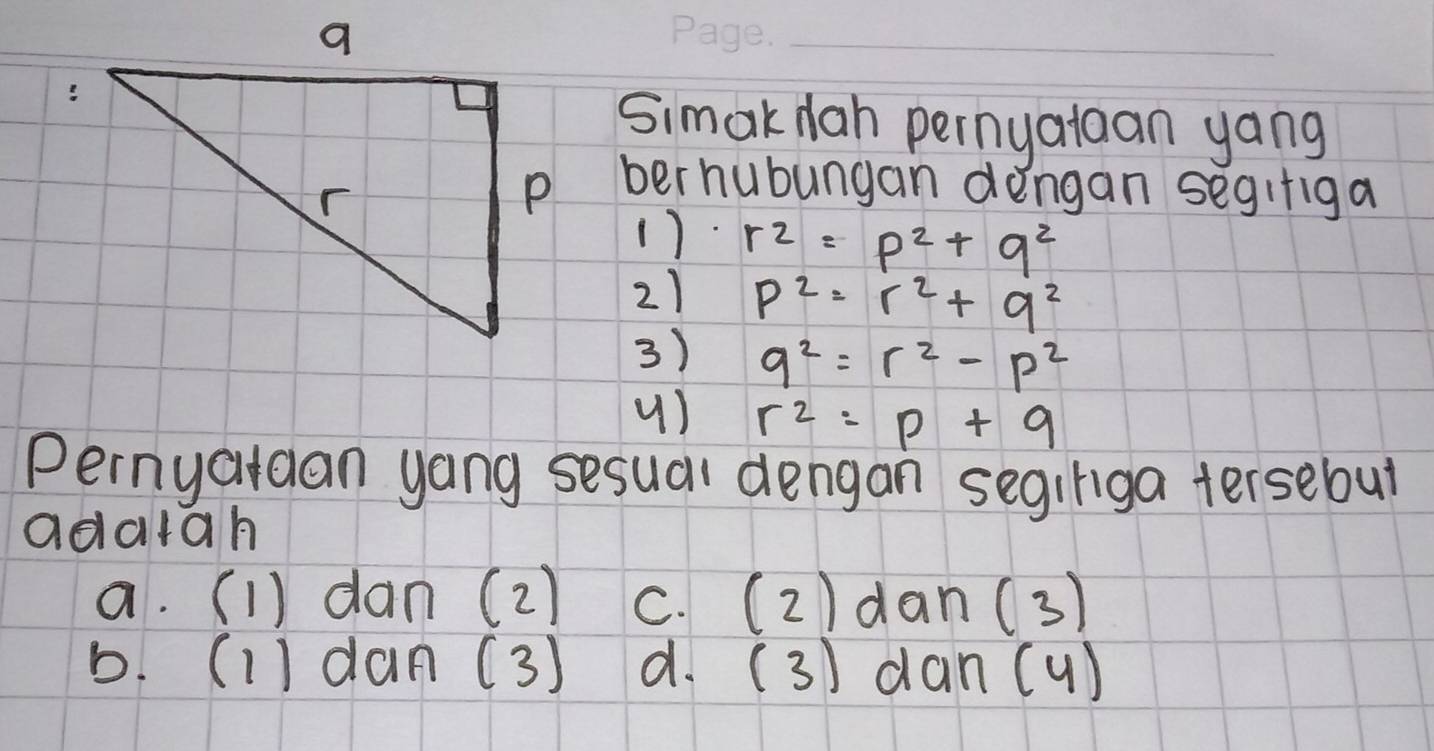 q
Page.
r
p
Simaklah pernyataan yang
berhubungan dengan segitiga
1) r² = p² + q²
2) p² = r² + q²
3) q² = r² - p²
4) r² = p + q
Pernyataan yang sesuai dengan segitiga tersebut
adalah
a. (1) dan (2) c. (2) dan (3)
b. (1) dan (3) d. (3) dan (4)